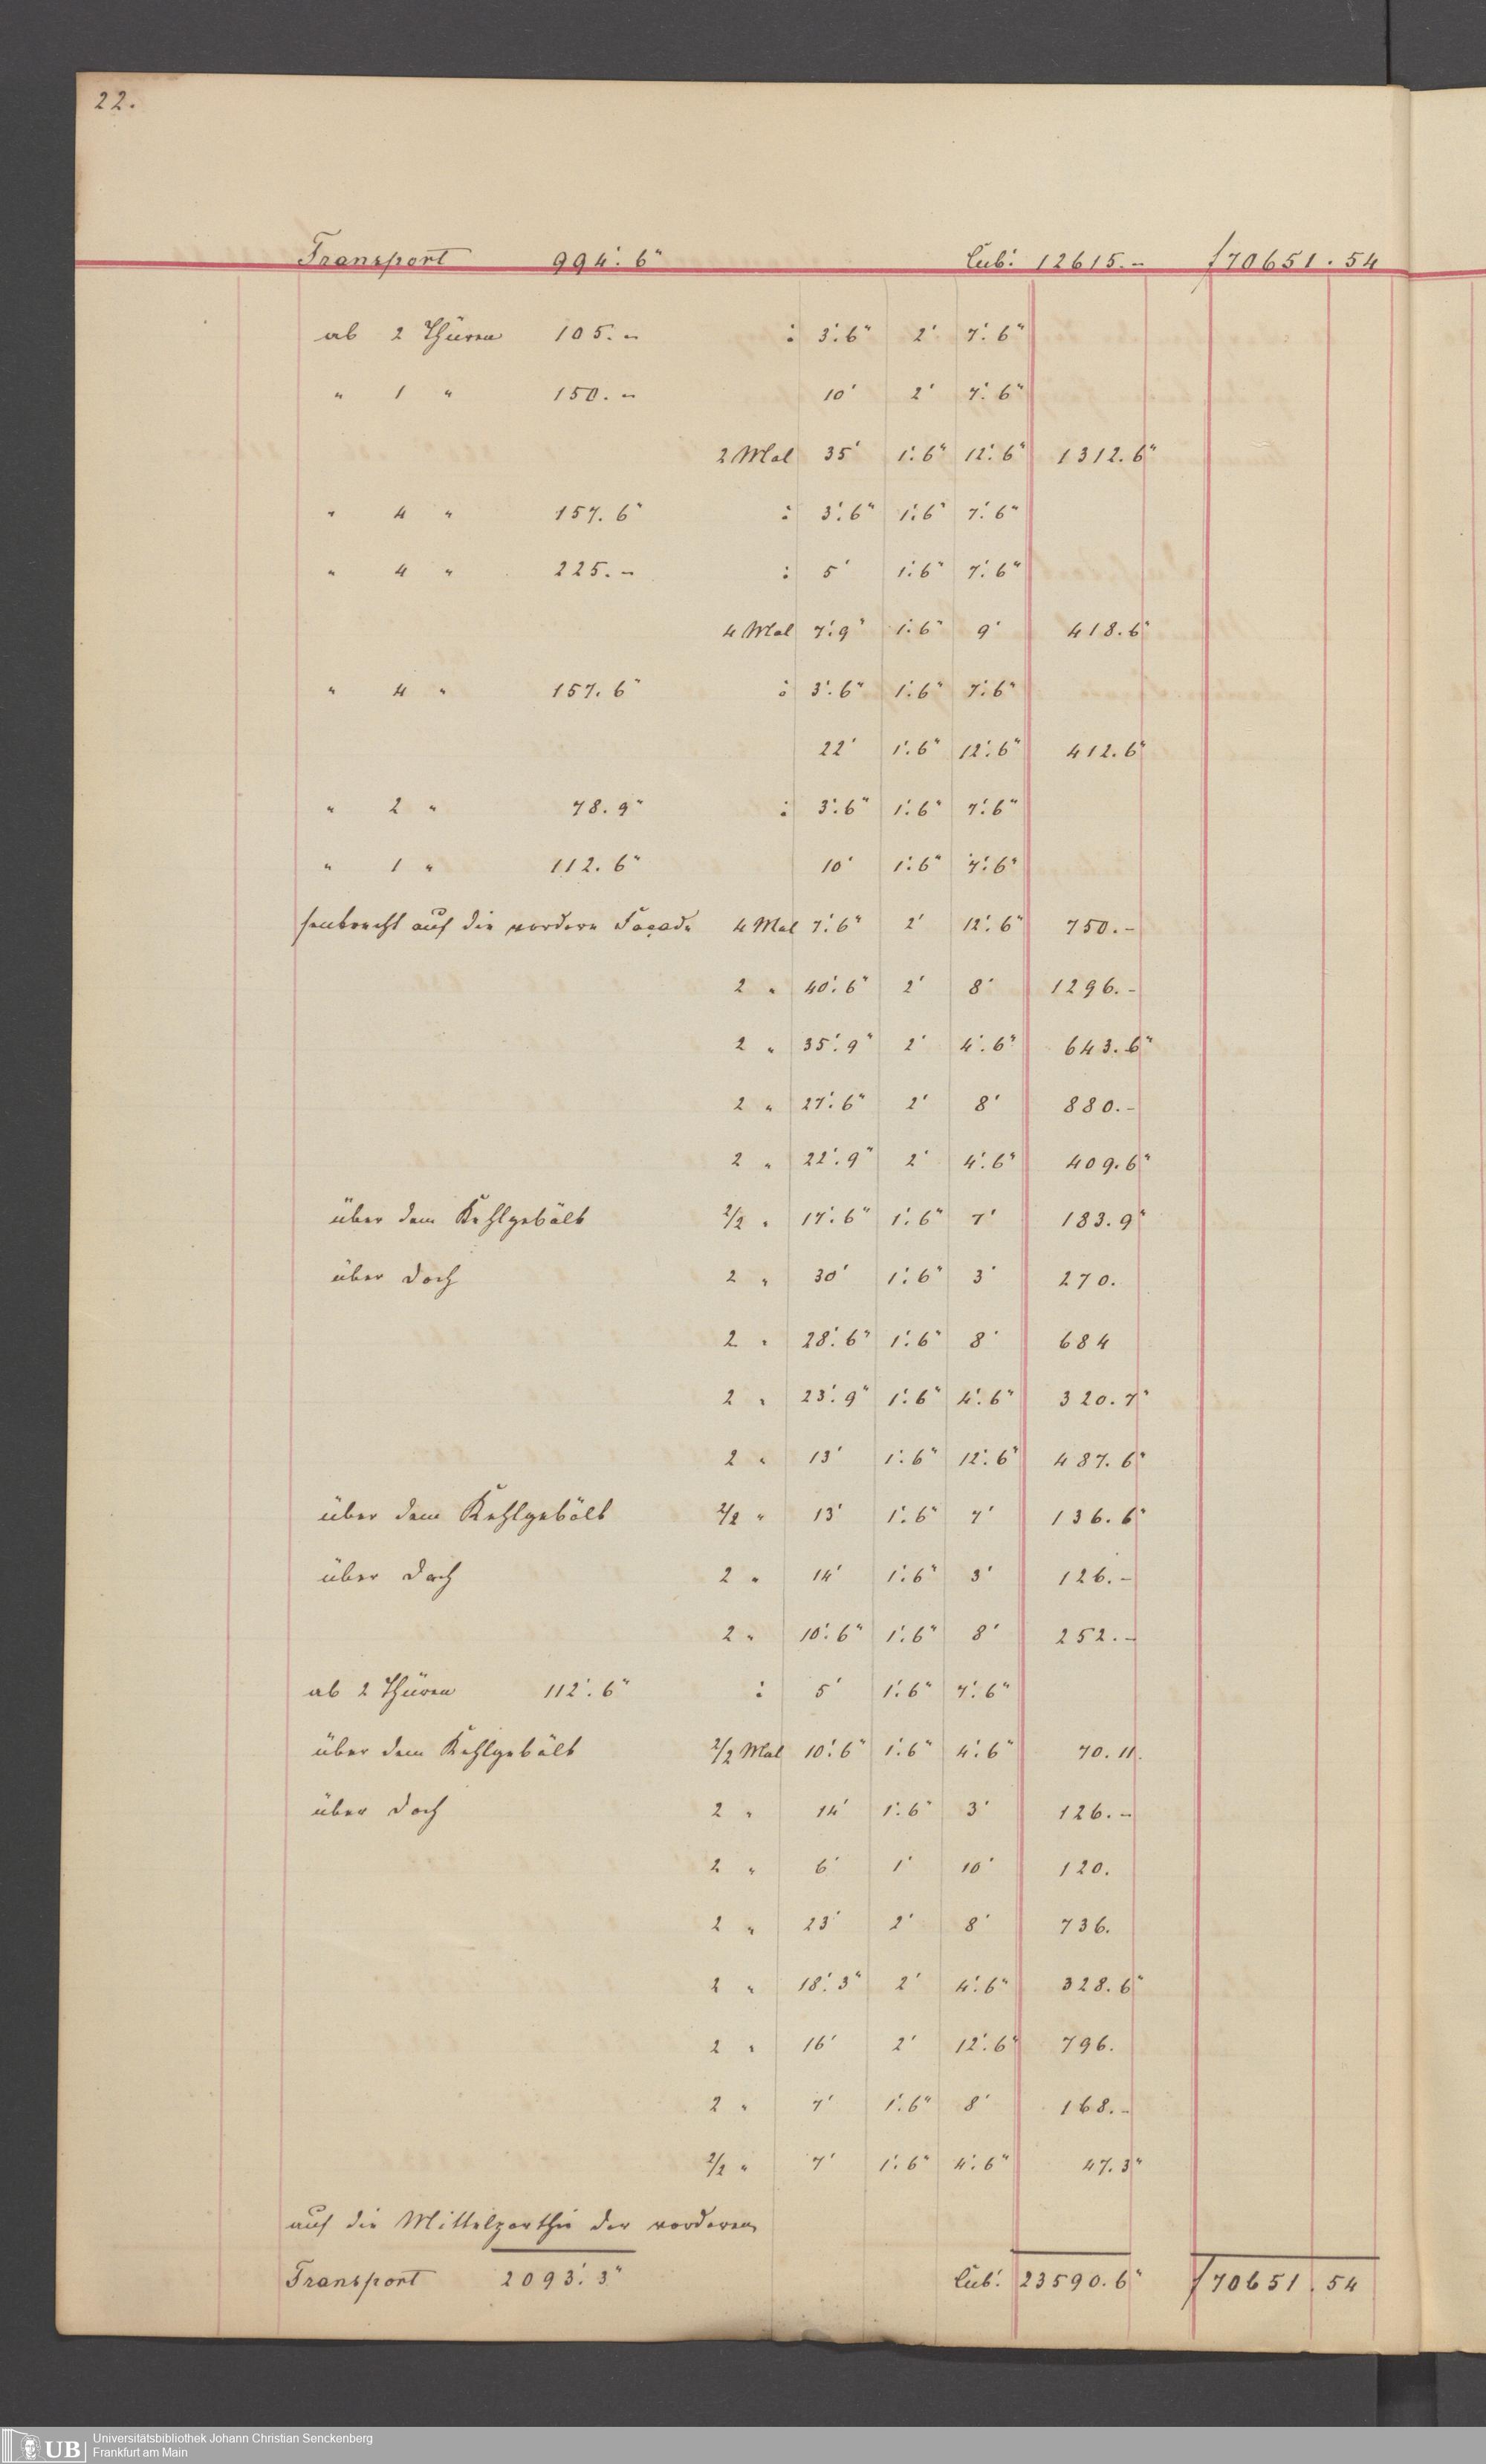 22.
Transport 994'. 6" Cub'. 12615.- f 70651. 54
ab 2 Thüren 105. - : 3'. 6" 2' 7'. 6"
" 1 " 150. - 10' 2' 7'. 6"
2 Mal 35' 1'. 6" 12'. 6" 1312. 6"
" 4 " 157. 6" : 3'. 6" 1'. 6" 7'. 6"
" 4 " 225. - : 5' 1'. 6" 7'. 6"
4 Mal 7'. 9" 1'. 6" 9' 418. 6"
" 4 " 157. 6" : 3'. 6" 1'. 6" 7'. 6"
22' 1'. 6" 12'. 6" 412. 6"
" 2 " 78. 9" : 3'. 6" 1'. 6" 7'. 6"
" 1 " 112. 6" 10' 1'. 6" 7'. 6"
senkrecht auf die vordere Façade 4 Mal 7'. 6" 2' 12'. 6" 750. -
2 " 40'. 6" 2' 8' 1296. -
2 " 35'. 9" 2' 4'. 6" 643. 6"
2 " 27'. 6" 2' 8' 880. -
2 " 22'. 9" 2' 4'. 6" 409. 6"
über dem Kehlgebälk 2/2 " 17'. 6" 1'. 6" 7' 183. 9"
über Dach 2 " 30' 1'. 6" 3' 270.
2 " 28'. 6" 1'. 6" 8' 684
2 " 23'. 9" 1'. 6" 4'. 6" 320. 7"
2 " 13' 1'. 6" 12'. 6" 487. 6"
über dem Kehlgebälk 2/2 " 13' 1'. 6" 7' 136. 6"
über Dach 2 " 14' 1'. 6" 3' 126. -
2 " 10'. 6" 1'. 6" 8' 252. -
ab 2 Thüren 112'. 6" : 5' 1'. 6" 7'. 6"
über dem Kehlgebälk 2/2 Mal 10'. 6" 1'. 6" 4'. 6" 70. 11.
über Dach 2 " 14' 1'. 6" 3' 126. -
2 " 6' 1' 10' 120.
2 " 23' 2' 8' 736.
2 " 18'. 3" 2' 4'. 6" 328. 6"
2 " 16' 2' 12'. 6" 796.
2 " 7' 1'. 6" 8' 168. -
2/2 " 7' 1'. 6" 4'. 6" 47. 3"
auf die Mittelparthie der vorderen
Transport 2093'. 3" Cub'. 23590. 6" f 70651. 54
UB
Universitätsbibliothek Johann Christian Senckenberg
Frankfurt am Main